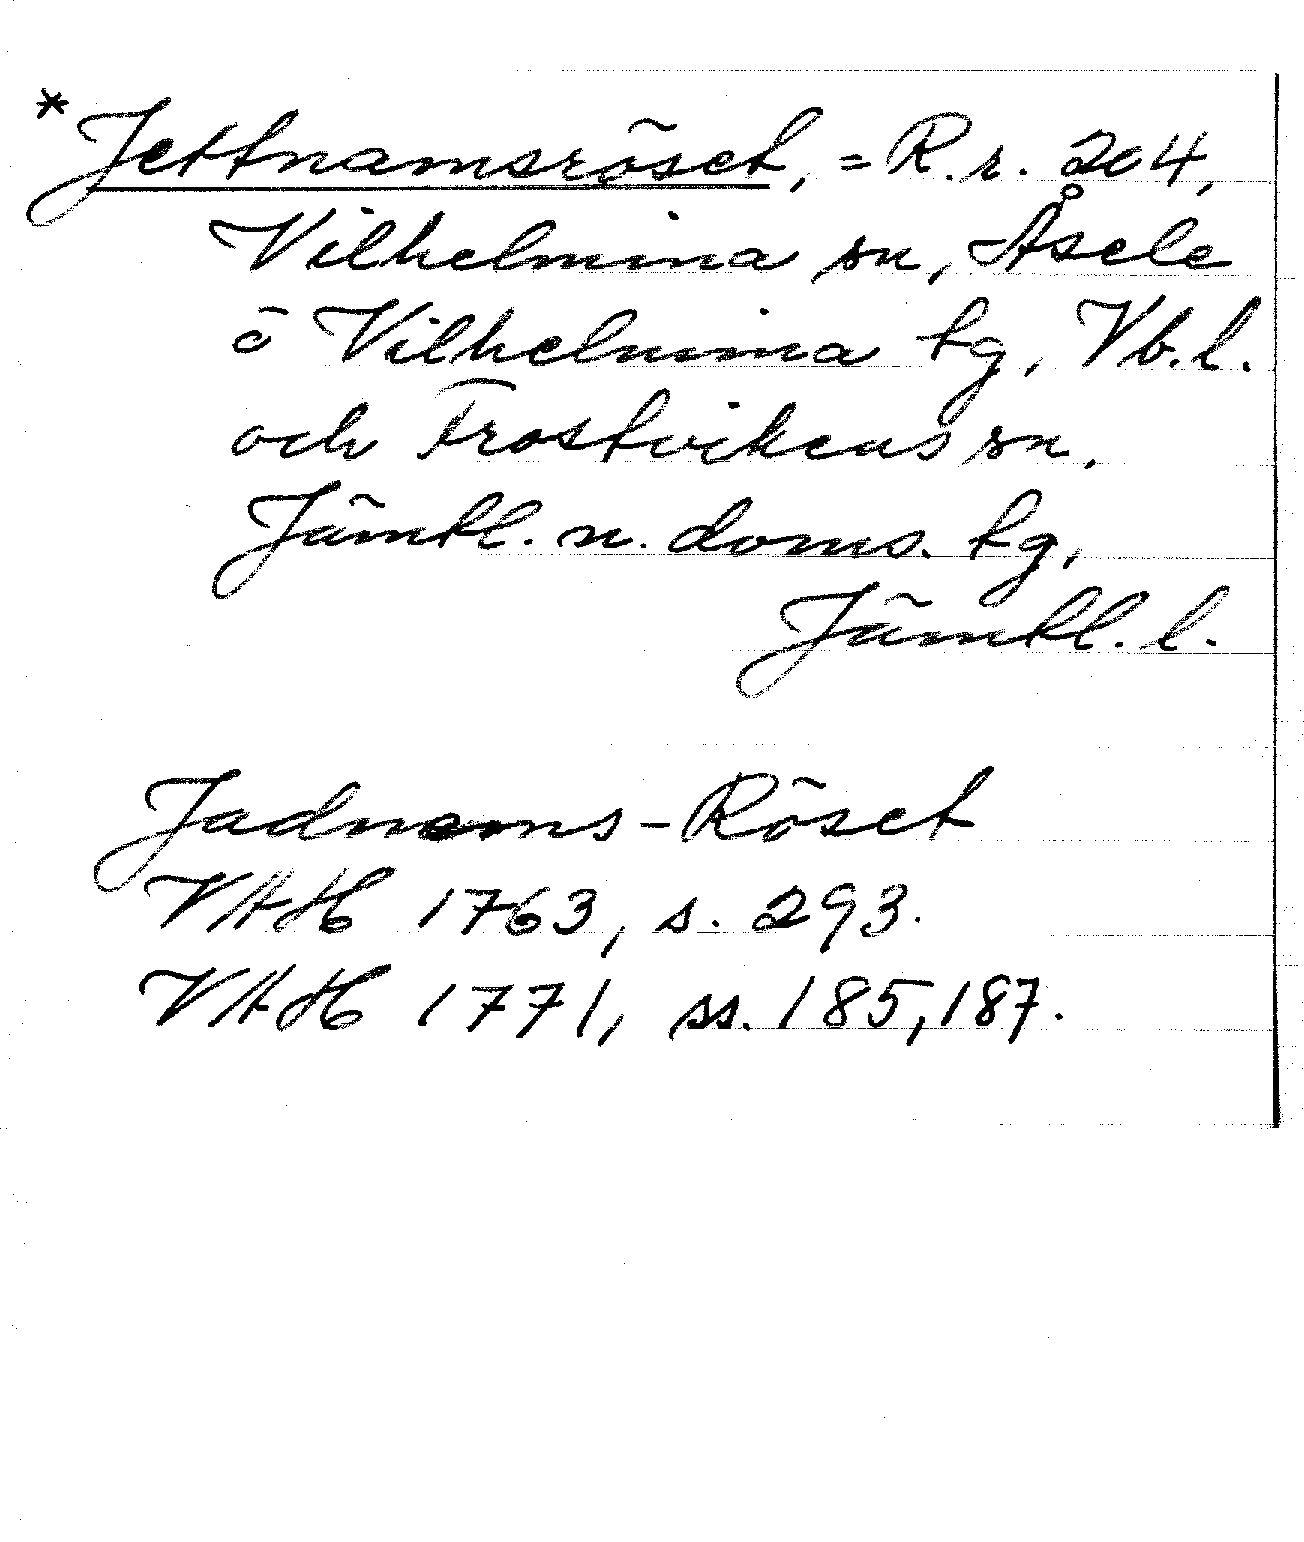 *Jettnamsröset, = R.r. 204,
Vilhelmina sn, Åsele
o Vilhelmina tg, Vb.l.
och Frostvikens sn.
Jämtl. n. doms. tg,
Jämtl. l.
Jadnems-Röset
VAH 1763, s. 293.
VAH 1771, ss. 185, 187.